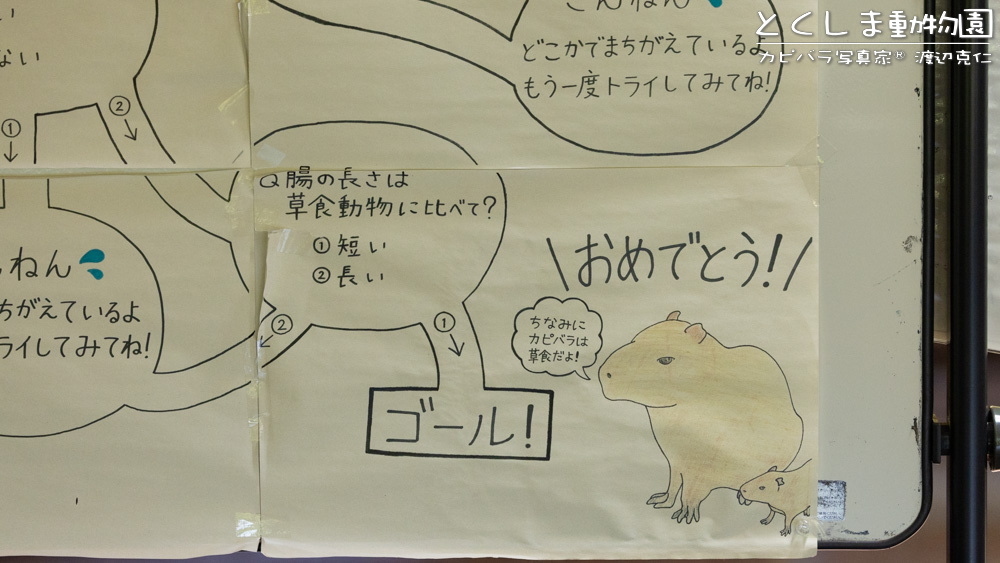 とくしま動物園
カピバラ写真家® 渡辺克仁
ない
①
②
どこかでまちがえているよ
もう一度トライしてみてね!
Q 腸の長さは
草食動物に比べて?
① 短い
② 長い
ねん
ちがえているよ
ライしてみてね!
②
①
ゴール!
\おめでとう!/
ちなみに
カピバラは
草食だよ!